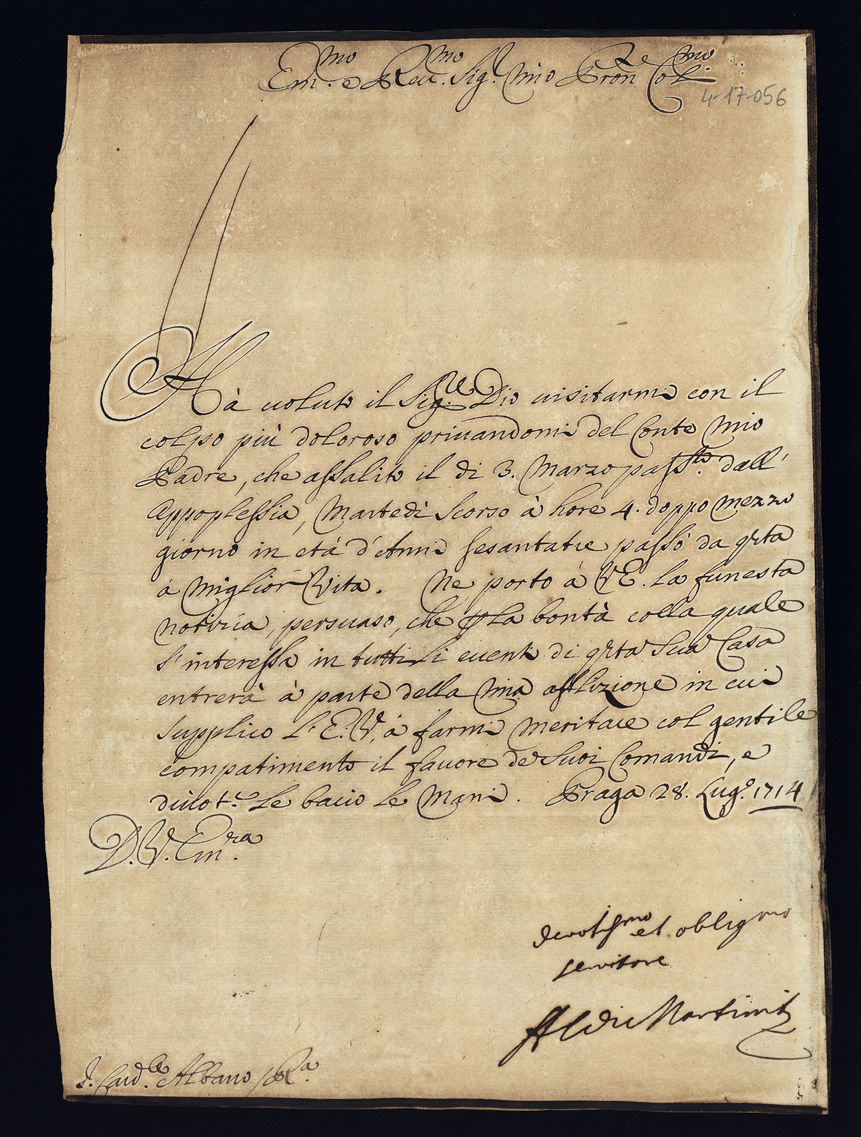 Em.mo e Reu.mo Sig.r Mio Pron.e Col.mo
4-17-056
Hà uoluto il Sig.re Dio uisitarmi con il
colpo più doloroso priuandomi del Conte mio
Padre, che assalito il di 3. Marzo pass.to dall'
Appoplessia, Martedì scorso à hore 4. doppo mezzo
giorno in età d'Anni sesantatre passò da q'sta
à miglior Vita. Ne porto à V.E. la funesta
notizia, persuaso, che p la bontà colla quale
s'interessa in tutti li euenti di q'sta Sua Casa
entrerà à parte della mia afflizione in cui
supplico L'E.V. à farmi meritare col gentile
compatimento il fauore de Suoi Comandi, e
diuot.e le bacio le Mani. Praga 28. Lug.o 1714
D.V. Em.ra
deuotis.mo et oblig.mo
seruitore
Martinitz
S. Card.le Albano